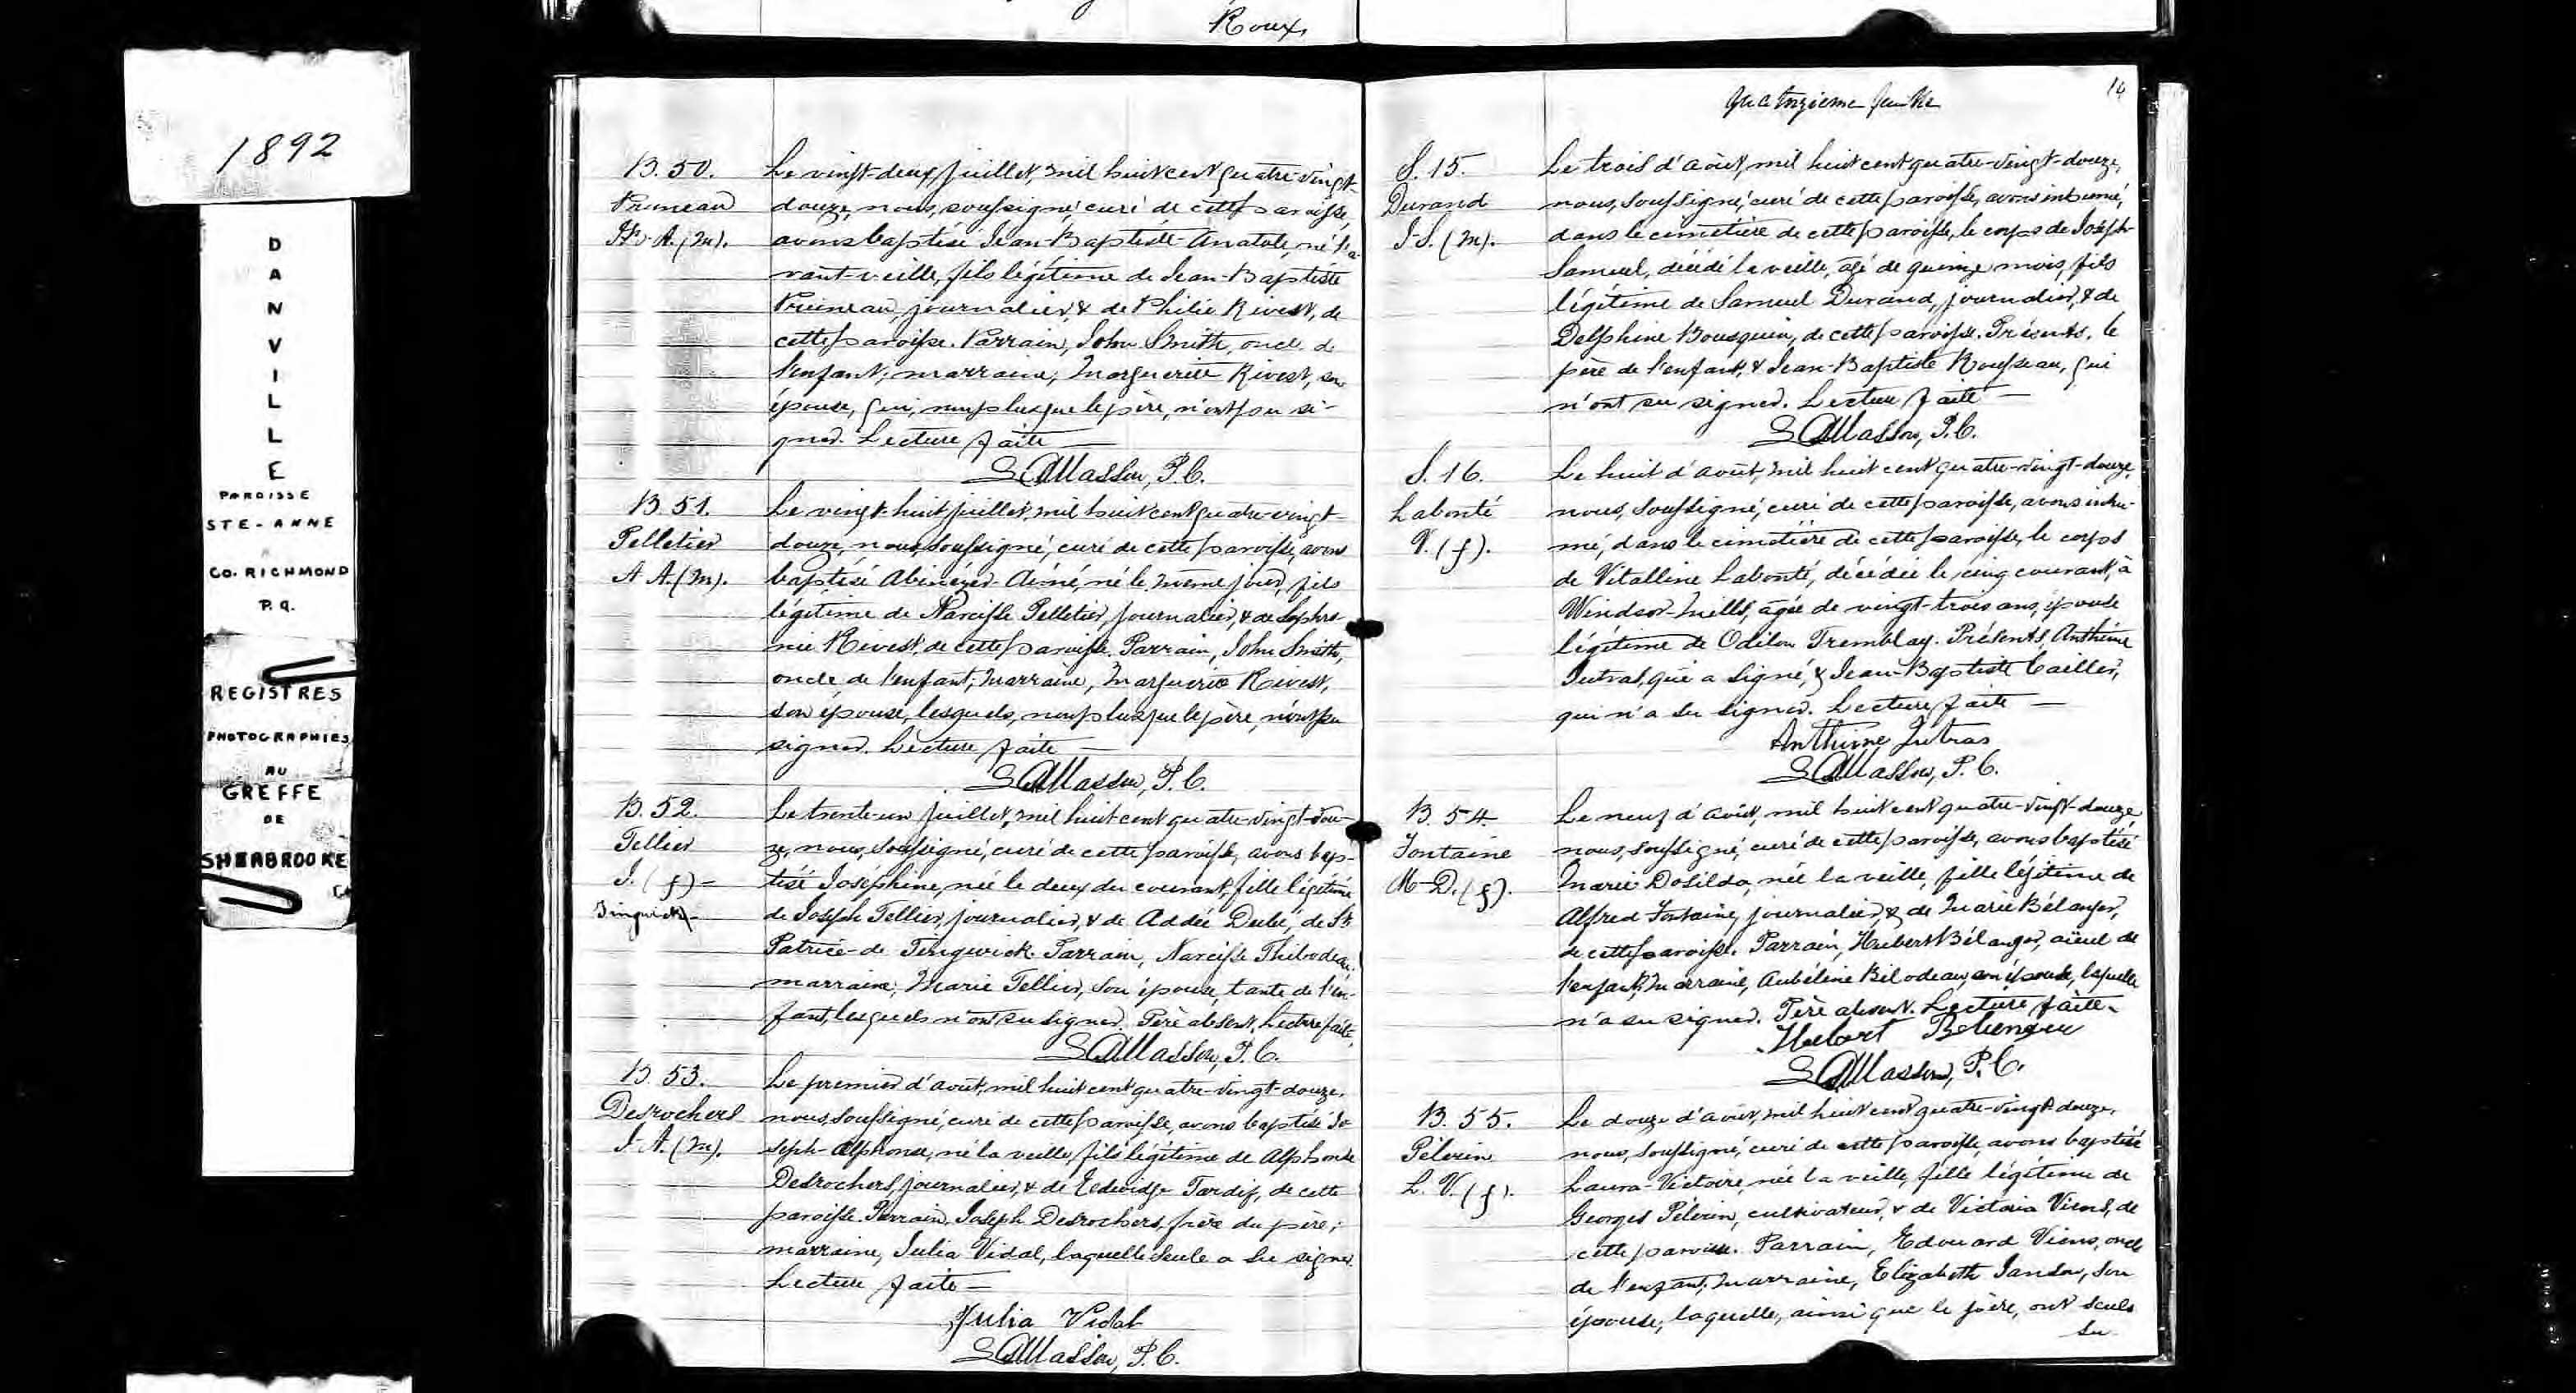 Roux,
1892
D
A
N
V
I
L
L
E
PAROISSE
STE-ANNE
CO. RICHMOND
P.Q.
REGISTRES
PHOTOGRAPHIES
AU
GREFFE
DE
SHERBROOKE
B. 50.
Pruneau
J.-B.-A. (m).
Le vingt-deux juillet, mil huit cent quatre-vingt-
douze, nous, soussigné, curé de cette paroisse,
avons baptisé Jean-Baptiste-Anatole, né l'a-
vant-veille, fils légitime de Jean-Baptiste
Pruneau, journalier, & de Philie Rivest, de
cette paroisse. Parrain, John Smith, oncle de
l'enfant; marraine, Marguerite Rivest, son
épouse, qui, non plus que le père, n'ont su si-
gner. Lecture faite —
Masson, P. C.
B. 51.
Pelletier
A A. (m).
Le vingt-huit juillet, mil huit cent quatre-vingt-
douze, nous, soussigné, curé de cette paroisse, avons
baptisé Abinézer-Aimé, né le même jour, fils
légitime de Narcisse Pelletier, journalier, & de Sophro-
nie Rivest, de cette paroisse. Parrain, John Smith,
oncle de l'enfant; marraine, Marguerite Rivest,
son épouse, lesquels, non plus que le père, n'ont su
signer. Lecture faite —
Masson, P. C.
B. 52.
Tellier
J. (f) —
Tingwick —
Le trente-un juillet, mil huit cent quatre-vingt-dou-
ze, nous, soussigné, curé de cette paroisse, avons bap-
tisé Joséphine, née le deux du courant, fille légitime
de Joseph Tellier, journalier, & de Addée Dubé, de St
Patrice-de Tingwick. Parrain, Narcisse Thibodeau;
marraine, Marie Tellier, son épouse, tante de l'en-
fant, lesquels n'ont su signer. Père absent. Lecture faite.
Masson, P. C.
B. 53.
Desrochers
J. A. (m).
Le premier d'août, mil huit cent quatre-vingt-douze,
nous, soussigné, curé de cette paroisse, avons baptisé Jo-
seph-Alphonse, né la veille, fils légitime de Alphonse
Desrochers, journalier, & de Edwidge Tardif, de cette
paroisse. Parrain, Joseph Desrochers, frère du père;
marraine, Julia Vidal, laquelle seule a su signer.
Lecture faite —
Julia Vidal
Masson, P. C.
14
Quatorzieme feuille
S. 15.
Durand
J-S. (m).
Le trois d'août, mil huit cent quatre-vingt-douze,
nous, soussigné, curé de cette paroisse, avons inhumé,
dans le cimetière de cette paroisse, le corps de Joseph-
Samuel, décédé la veille, âgé de quinze mois, fils
légitime de Samuel Durand, journalier, & de
Delphine Bousquin, de cette paroisse. Présents, le
père de l'enfant, & Jean-Baptiste Rousseau, qui
n'ont su signer. Lecture faite —
Masson, P. C.
S. 16.
Labonté
V. (f).
Le huit d'août, mil huit cent quatre-vingt-douze,
nous, soussigné, curé de cette paroisse, avons inhu-
mé, dans le cimetière de cette paroisse, le corps
de Vitalline Labonté, décédée le cinq courant, à
Windsor-Mills, âgée de vingt-trois ans, épouse
légitime de Odilon Tremblay. Présents, Anthime
Jutras, qui a signé, & Jean-Baptiste Cailler,
qui n'a su signer. Lecture faite —
Anthime Jutras
Masson, P. C.
B. 54.
Fontaine
M-D. (f).
Le neuf d'août, mil huit cent quatre-vingt-douze,
nous, soussigné, curé de cette paroisse, avons baptisé
Marie Dosilda, née la veille, fille légitime de
Alfred Fontaine, journalier, & de Marie Bélanger,
de cette paroisse. Parrain, Hubert Bélanger, aïeul de
l'enfant; marraine, Aubéline Bilodeau, son épouse, laquelle
n'a su signer. Père absent. Lecture faite.
Hubert Belenger
Masson, P. C.
B. 55.
Pélerin
L. V. (f).
Le douze d'août, mil huit cent quatre-vingt-douze,
nous, soussigné, curé de cette paroisse, avons baptisé
Laura-Victoire, née la veille, fille légitime de
Georges Pélerin, cultivateur, & de Victoria Viens, de
cette paroisse. Parrain, Edouard Viens, oncle
de l'enfant; marraine, Elizabeth Janson, son
épouse, laquelle, ainsi que le père, ont seuls
su